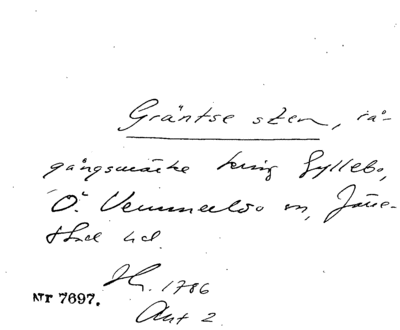 Gräntse sten, rå-
gångsmärke kring Gyllebo,
Ö. Vemmerlöv sn, Järre-
stad hd.
Hg. 1786
Ant 2
Nr 7697.